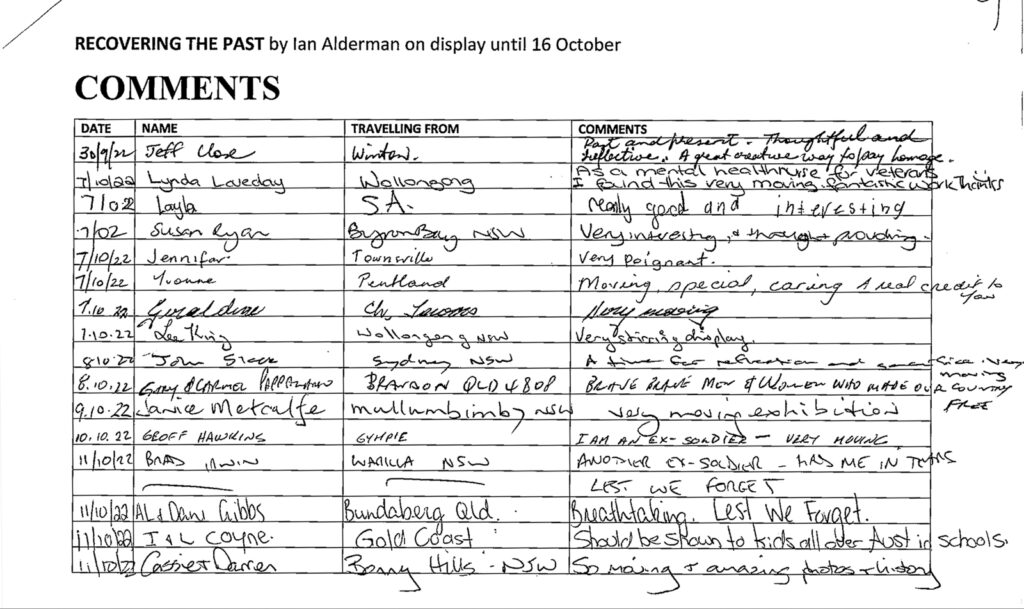 RECOVERING THE PAST by Ian Alderman on display until 16 October
COMMENTS
DATE NAME TRAVELLING FROM COMMENTS
30/9/22 Jeff Close Winton. Past and present. Thoughtful and
reflective. A great creative way to pay homage.
7/10/22 Lynda Loveday Wollongong As a mental health nurse for veterans
I found this very moving. fantastic work Thanks
7/02 Layla SA. really good and interesting
7/02 Susan Ryan Byron Bay NSW Very interesting, & thought provoking.
7/10/22 Jennifar. Townsville very Poignant.
7/10/22 Yvonne Pentland Moving, special, caring a real credit to
you
7.10.22 Geraldine Very moving
7.10.22 Lee King Wollongong NSW Very stirring display.
8.10.22 John Sydney NSW A time for reflection and very
moving
8.10.22 Gary & CARMEL BRANDON QLD 4808 BRAVE BRAVE MEN & WOMEN WHO MADE OUR COUNTRY
FREE
9.10.22 Janice Metcalfe mullumbimby NSW very moving exhibition
10.10.22 GEOFF HAWKINS GYMPIE I AM AN EX-SOLDIER – VERY MOVING
11/10/22 BRAD IRWIN WARILLA NSW ANOTHER EX-SOLDIER – HAS ME IN TEARS
LEST WE FORGET
11/10/22 AL & Dane Gibbs Bundaberg Qld. Breathtaking. Lest We Forget.
11/10/22 I & L COYNE. Gold Coast Should be shown to kids all over Aust in schools.
11/10/22 Cassie + Darren Bonny Hills - NSW So moving + amazing photos + history